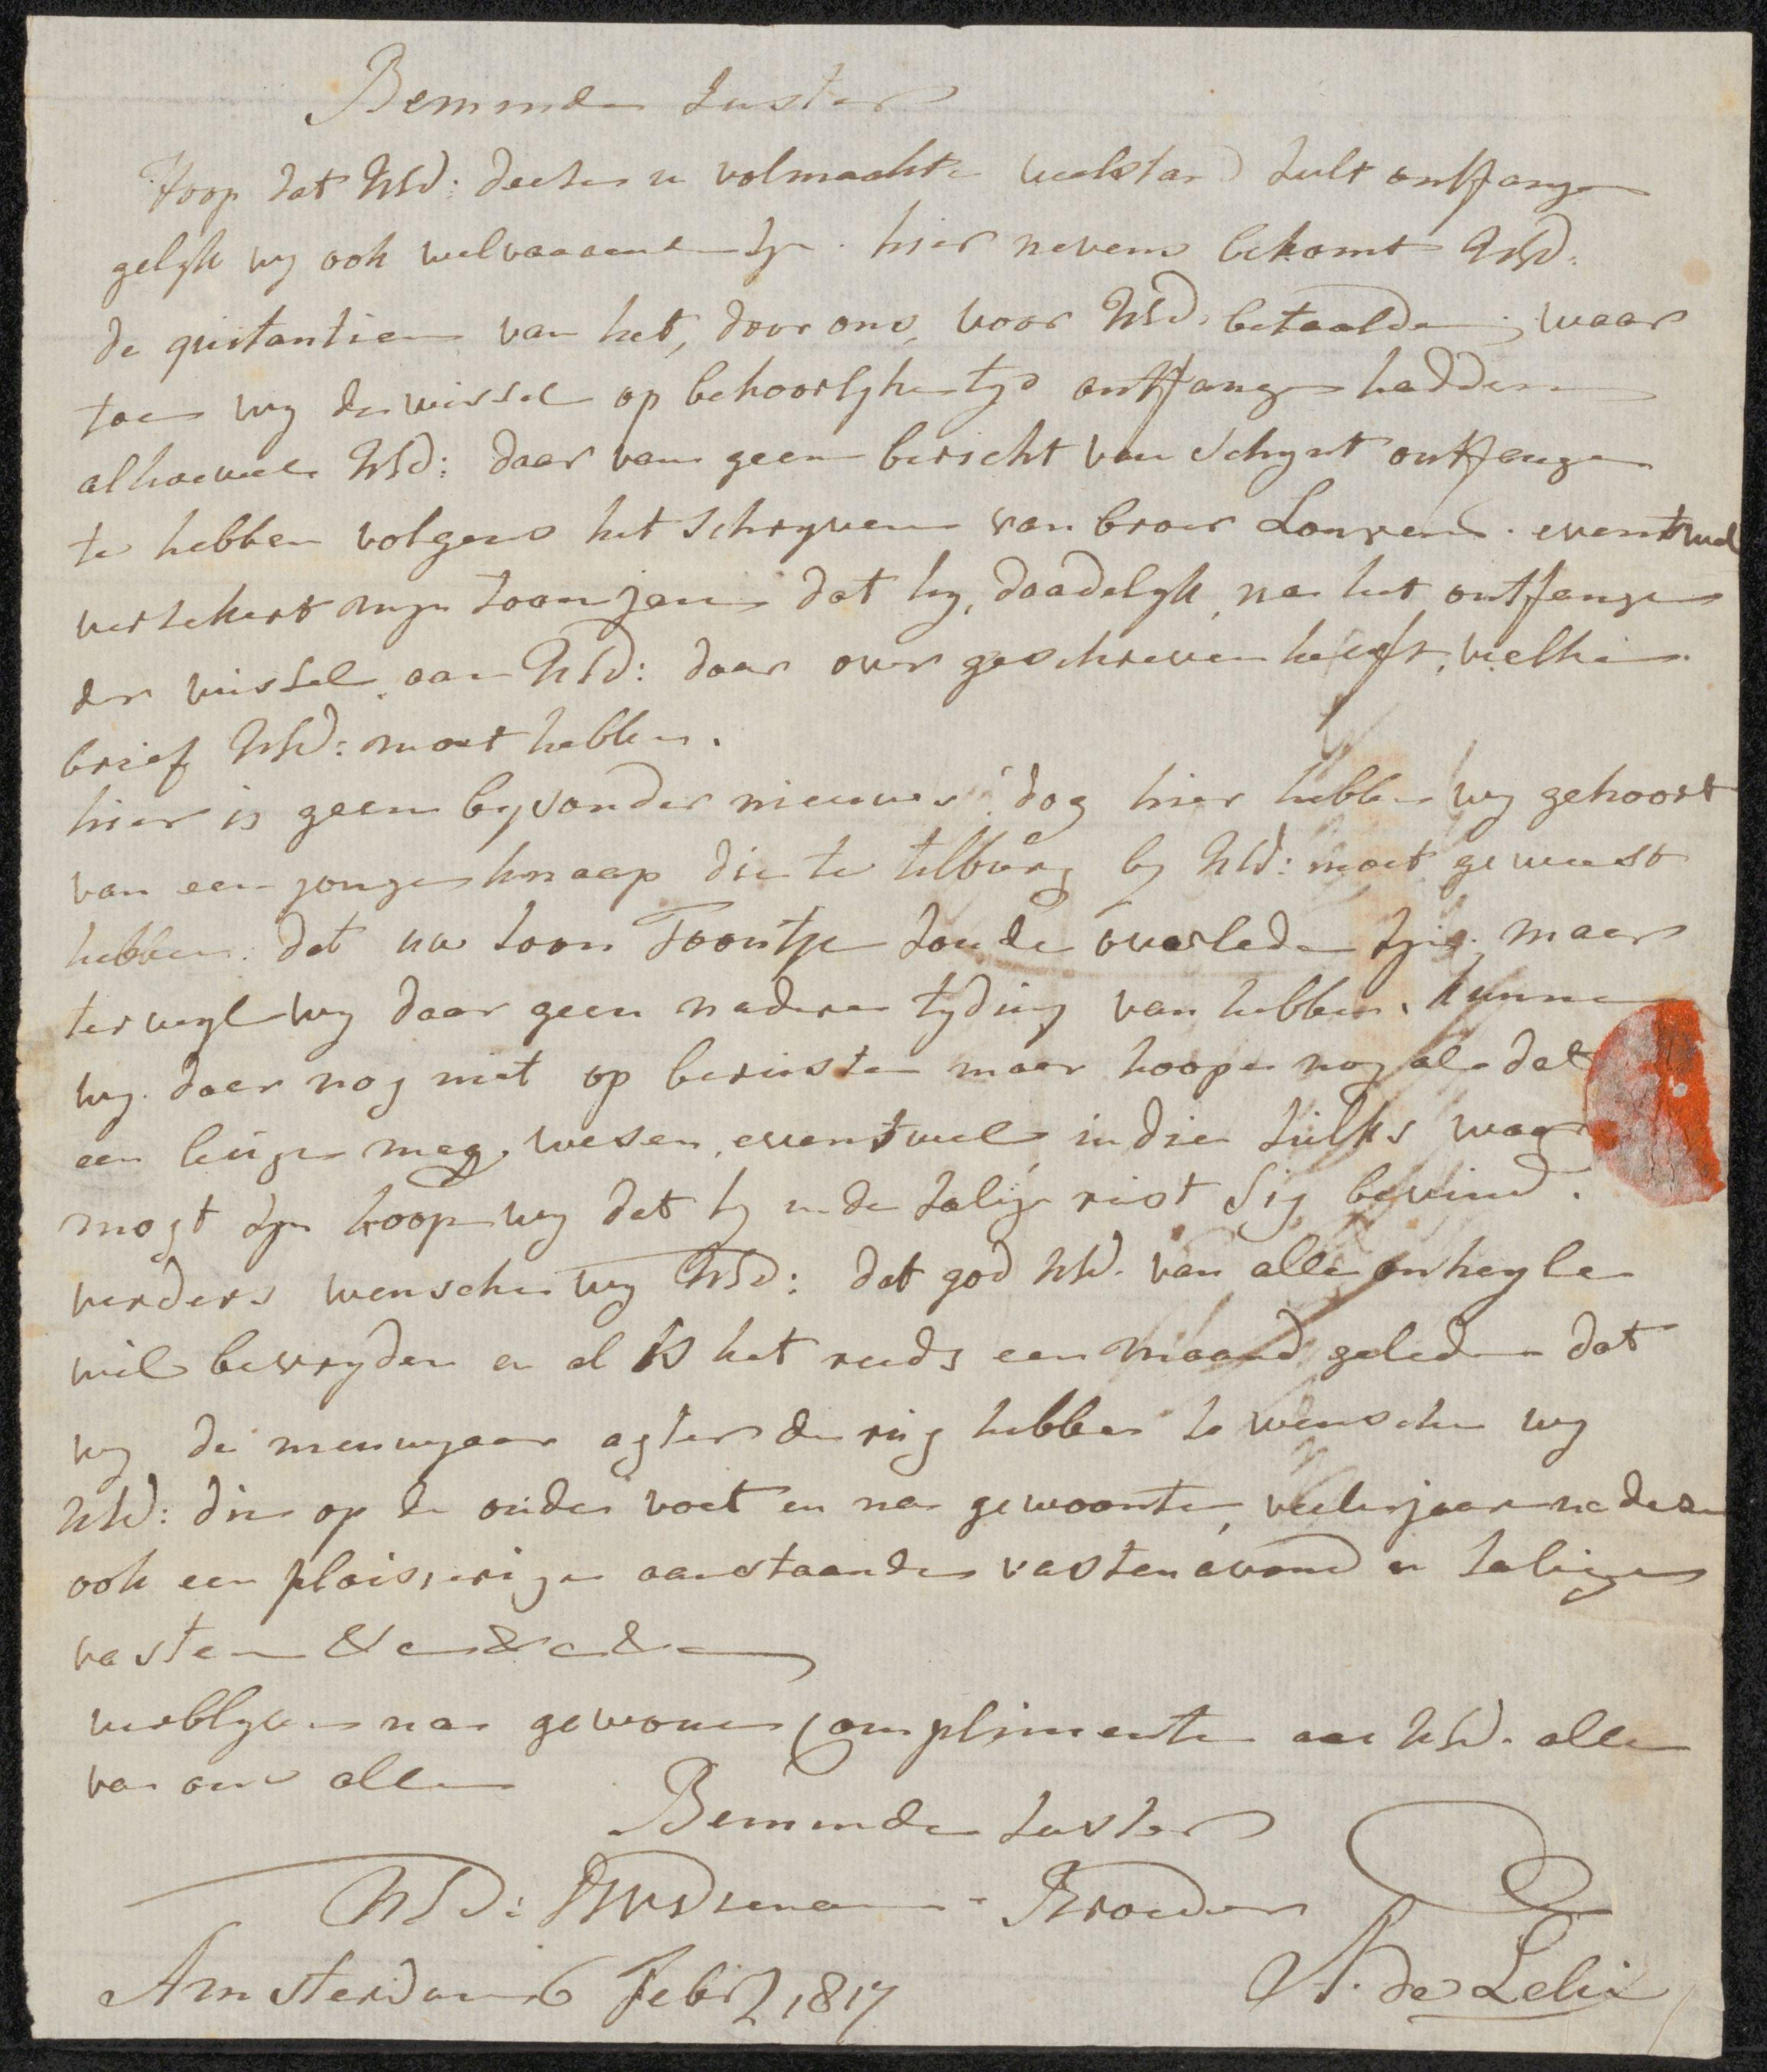 Beminde Suster
Hoop dat UEd: deesen in volmaakte welstand sult ontfangen
gelyk wy ook welvaarende zyn. hier nevens bekomt UEd:
de quitantien van het, door ons, voor UEd. betaalde; waar
toe wy de wissel op behoorlyke tyd ontfangen hadden
alhoewel UEd: daar van geen bericht van schynt ontfangen
te hebben volgens het schryven van broer Lourens. eventwel
versekert myn soon jan dat hy, daadelyk, na het ontfangen
der wissel, aan UEd: daar over geschreven heeft, welken
brief UEd: moet hebben.
hier is geen bysonder nieuws, dog hier hebben wy gehoort
van een jonge knaap die te tilburg by UEd: moet geweest
hebben. dat uw soon Toontje soude overleden zyn, maar
terwyl wy daar geen nadere tyding van hebben, kunnen
wy daar nog niet op berusten maar hoopen nog al dat
een leugen mag wesen, eventwel, indien sulks waar
mogt zyn hoopen wy dat hy in de salige rust sig bevind.
verders wenschen wy UEd: dat god UEd. van alle onheyle
wil bevryden en al is het reeds een maand geleden dat
wy de nieuwjaar agter de rug hebben so wenschen wy
UEd: die op de oude voet en na gewoonte, veele jaaren na desen
ook een plaisierige aanstaande vastenavond en salige
vasten &c &c &c
verblyve na gewone complimente aan UEd. alle
van ons alle
Beminde Suster
UEd: DWDienaar - Broeder
Amsterdam 6 Feb: 1817
A. de Lelie